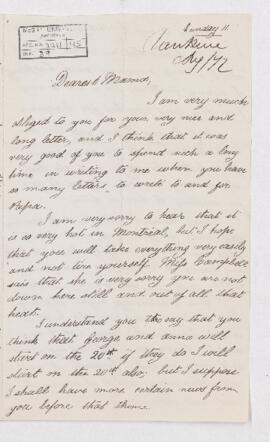 Sunday 11
Aug/72
Dearest Mama,
I am very much
obliged to you for your very nice and
long letter, and I think that it was
very good of you to spend such a long
time in writing to me when you have
so many letters to write to and for
Papa.
I am very sorry to hear that it
is so very hot in Montreal, but I hope
that you will take everything very easily
and not tire yourself. Miss
says that she is very sorry you are not
down here still and out of all that
heat.
I understand you to say that you
think that George and Anna will
start on the 20th if they do I will
start on the 20th also, but I suppose
I shall have more certain news from
you before that time.